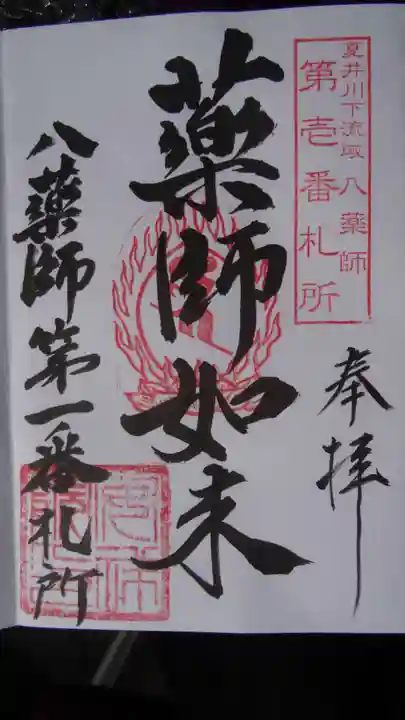 夏井川下流域八薬師
第壱番札所
奉拝
藥師如来
八藥師第一番札所